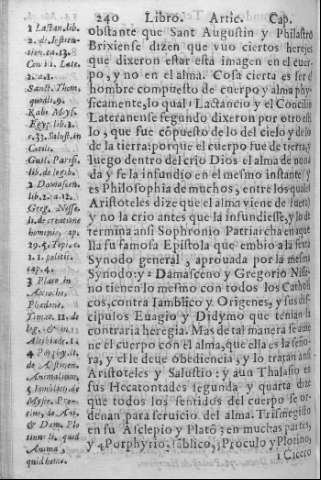 240 Libro. Artic. Cap.
obstante que Sant Augustin y Philastro
Brixiense dizen que vuo ciertos herejes
que dixeron estar esta imagen en el cuer-
po, y no en el alma. Cosa cierta es ser el
hombre compuesto de cuerpo y alma phy-
sicamente, lo qual Lactancio y el Concilio
Lateranense segundo dixeron por otro esti
lo, que fue cõpuesto de lo del cielo y de lo
de la tierra: porque el cuerpo fue de tierra, y
luego dentro del crio Dios el alma de nona
da y se la infundio en el mesmo instante: y
es Philosophia de muchos, entre los quales
Aristoteles dize que el alma viene de fuera,
y no la crio antes que la infundiesse, y lo de
termina ansi Sophronio Patriarcha en aque
lla su famosa Epistola que embio a la sexta
Synodo general, aprouada por la mesma
Synodo: y Damasceno y Gregorio Nisse
no tienen lo mesmo con todos los Catholi
cos, contra Iamblico y Origenes, y sus dis
cipulos Euagio y Didymo que tenian la
contraria heregia. Mas de tal manera se aue
ne el cuerpo con el alma, que ella es la seño-
ra, y el le deue obediencia, y lo tratan ansi
Aristoteles y Salustio: y aun Thalasio en
sus Hecatontades segunda y quarta dize
que todos los sentidos del cuerpo se or-
denan para seruicio del alma. Trismegisto
en su Asclepio y Platõ en muchas partes,
y 4 Porphyrio, Iãblico, Proculo y Plotino,
1 Cicero
1 Lactan. lib.
2. de
Conci. Late.
Sanct. Thom.
quodli. 9.
Rabi Moys.
Egyp. lib. 1.
c. 33. Salust. in
Catili.
Guil. Parisi.
lib. de legib.
2 Damascen.
lib. 2. c. 12.
Greg. Nisse.
li. de creatione
hominis, cap.
29. 5. Topi. c.
1. 1. politic.
cap. 4.
3 Plato in
Axiocho,
Phædone,
Timæo. 12. de
leg. &
Alcibiade. 1.
4 Porphy. li.
de Abstinen.
Animalium,
Iamblico de
Myste. Pro-
Dæm. Plo
tinus li. quid
Anima,
quid homo.